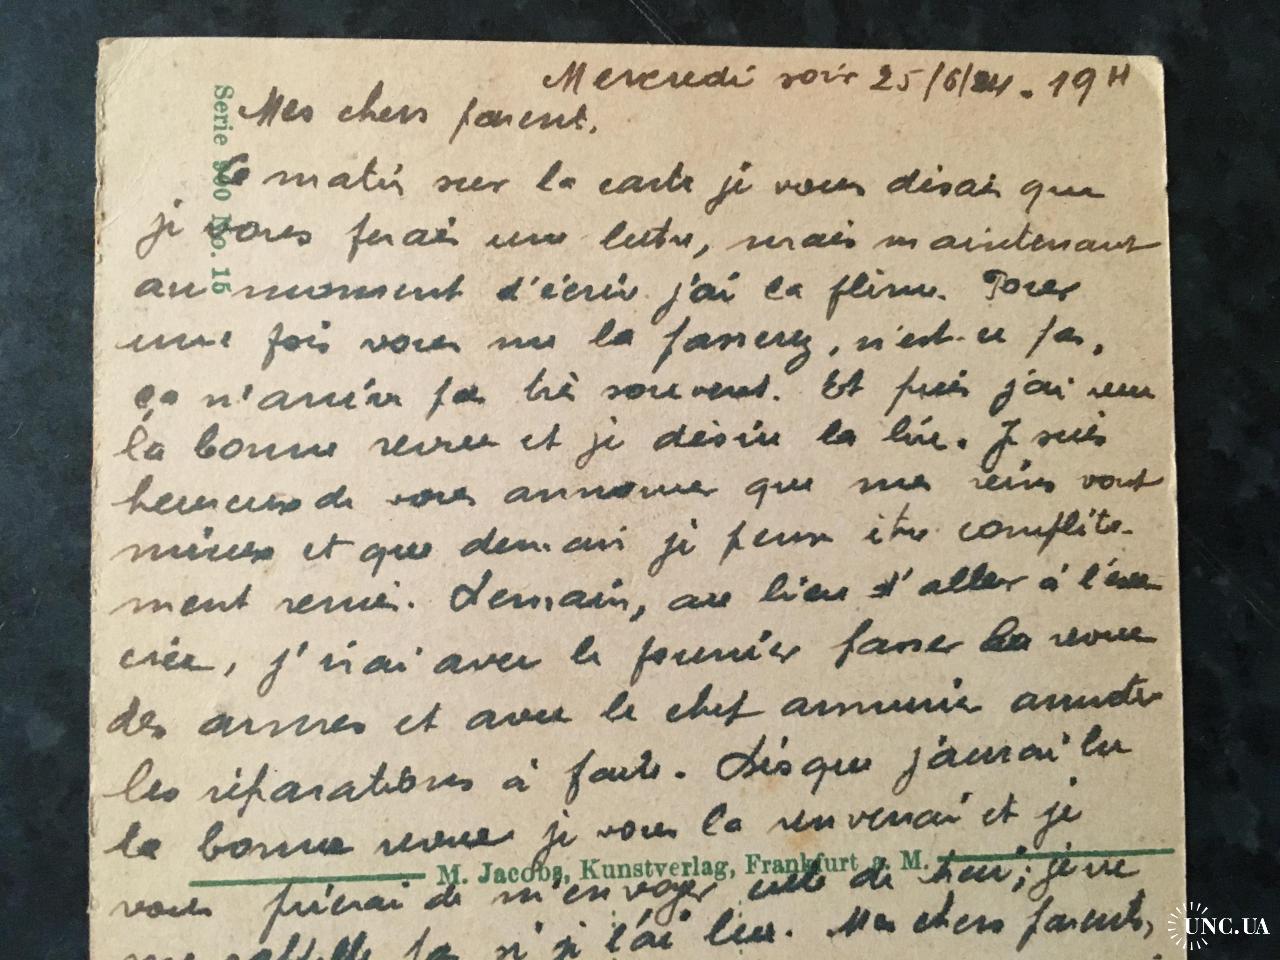 Mercredi soir 25/6/24. 19H
Mes chers parent.
Ce matin sur la carte je vous disais que
je vous ferais une lettre, mais maintenant
au moment d'écrire j'ai la flime. Pour
une fois vous me la passerez, n'est-ce pas,
ça n'arrive pas très souvent. Et puis j'ai eu
la bonne revue et je désire la lire. Je suis
heureux de vous annoncer que mes reins vont
mieux et que demain je peux être complète-
ment remis. Demain, au lieu d'aller à l'exer-
cice, j'irai avec le premier passer la revue
des armes et avec le chef armurier
les réparations à faire. Dès que j'aurai lu
la bonne revue je vous la renverrai et je
vous prierai de m'envoyer celle de ; je ne
me rappelle pas si je l'ai lue. Mes chers parents,
Serie 390 No. 15
M. Jacobs, Kunstverlag, Frankfurt a. M.
UNC.UA